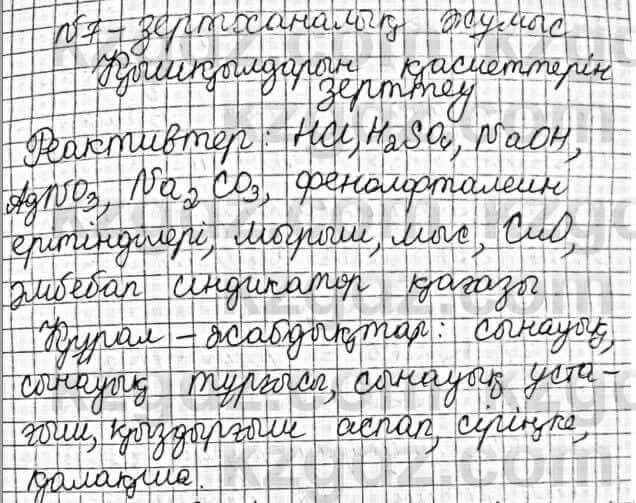 №7 - зертханалық жұмыс
Қышқылдарын қасиеттерін
зерттеу
Реактивтер: HCl, H₂SO₄, NaOH,
AgNO₃, Na₂CO₃, фенолфталеин
ерітінділері, мырыш, мыс, CuO,
әмбебап индикатор қағазы
Құрал - жабдықтар: сынауық,
сынауық тұрғысы, сынауық ұста-
ғыш, қыздырғыш аспап, сіріңке,
қалақша.